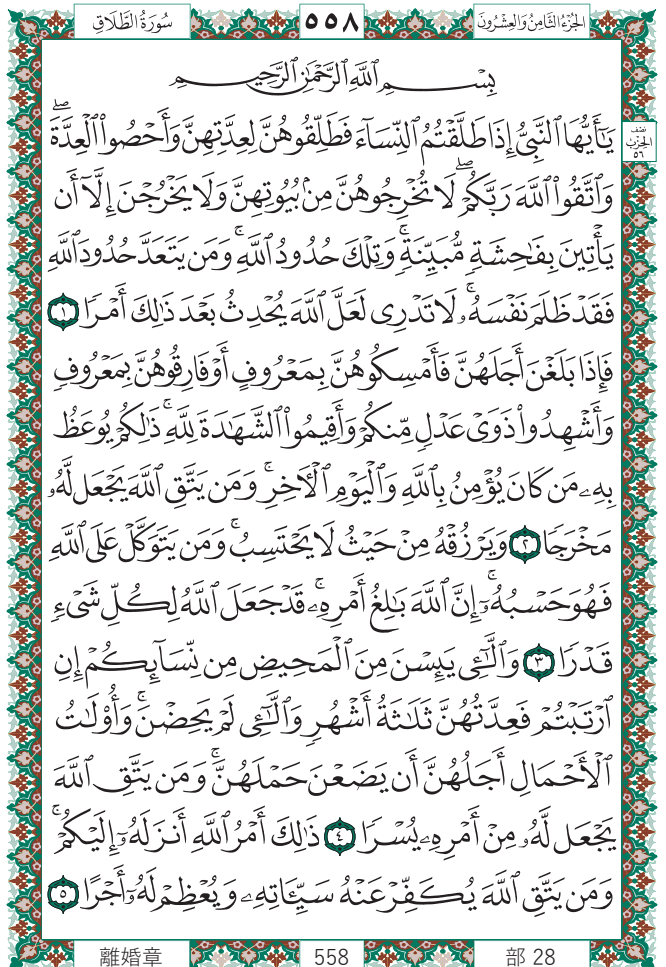 سُورَةُ الطَّلَاقِ ٥٥٨ الجُزْءُ الثَّامِنُ وَالعِشْرُونَ
بِسْمِ ٱللَّهِ ٱلرَّحْمَٰنِ ٱلرَّحِيمِ
يَٰٓأَيُّهَا ٱلنَّبِىُّ إِذَا طَلَّقْتُمُ ٱلنِّسَآءَ فَطَلِّقُوهُنَّ لِعِدَّتِهِنَّ وَأَحْصُوا۟ ٱلْعِدَّةَ ۖ
نصف الحزب ٥٦
وَٱتَّقُوا۟ ٱللَّهَ رَبَّكُمْ ۖ لَا تُخْرِجُوهُنَّ مِنۢ بُيُوتِهِنَّ وَلَا يَخْرُجْنَ إِلَّآ أَن
يَأْتِينَ بِفَٰحِشَةٍ مُّبَيِّنَةٍ ۚ وَتِلْكَ حُدُودُ ٱللَّهِ ۚ وَمَن يَتَعَدَّ حُدُودَ ٱللَّهِ
فَقَدْ ظَلَمَ نَفْسَهُۥ ۚ لَا تَدْرِى لَعَلَّ ٱللَّهَ يُحْدِثُ بَعْدَ ذَٰلِكَ أَمْرًا ١
فَإِذَا بَلَغْنَ أَجَلَهُنَّ فَأَمْسِكُوهُنَّ بِمَعْرُوفٍ أَوْ فَارِقُوهُنَّ بِمَعْرُوفٍ
وَأَشْهِدُوا۟ ذَوَىْ عَدْلٍ مِّنكُمْ وَأَقِيمُوا۟ ٱلشَّهَٰدَةَ لِلَّهِ ۚ ذَٰلِكُمْ يُوعَظُ
بِهِۦ مَن كَانَ يُؤْمِنُ بِٱللَّهِ وَٱلْيَوْمِ ٱلْءَاخِرِ ۚ وَمَن يَتَّقِ ٱللَّهَ يَجْعَل لَّهُۥ
مَخْرَجًا ٢ وَيَرْزُقْهُ مِنْ حَيْثُ لَا يَحْتَسِبُ ۚ وَمَن يَتَوَكَّلْ عَلَى ٱللَّهِ
فَهُوَ حَسْبُهُۥٓ ۚ إِنَّ ٱللَّهَ بَٰلِغُ أَمْرِهِۦ ۚ قَدْ جَعَلَ ٱللَّهُ لِكُلِّ شَىْءٍ
قَدْرًا ٣ وَٱلَّٰٓـِٔى يَئِسْنَ مِنَ ٱلْمَحِيضِ مِن نِّسَآئِكُمْ إِنِ
ٱرْتَبْتُمْ فَعِدَّتُهُنَّ ثَلَٰثَةُ أَشْهُرٍ وَٱلَّٰٓـِٔى لَمْ يَحِضْنَ ۚ وَأُو۟لَٰتُ
ٱلْأَحْمَالِ أَجَلُهُنَّ أَن يَضَعْنَ حَمْلَهُنَّ ۚ وَمَن يَتَّقِ ٱللَّهَ
يَجْعَل لَّهُۥ مِنْ أَمْرِهِۦ يُسْرًا ٤ ذَٰلِكَ أَمْرُ ٱللَّهِ أَنزَلَهُۥٓ إِلَيْكُمْ ۚ
وَمَن يَتَّقِ ٱللَّهَ يُكَفِّرْ عَنْهُ سَيِّـَٔاتِهِۦ وَيُعْظِمْ لَهُۥٓ أَجْرًا ٥
離婚章 558 部 28